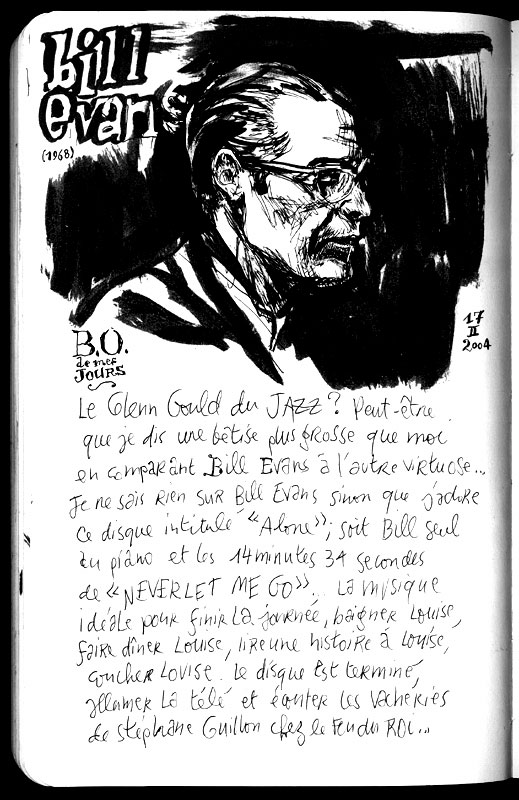 bill
evans
(1968)
B.O.
de mes
JOURS
17
II
2004
Le Glenn Gould du JAZZ? Peut-être
que je dis une bêtise plus grosse que moi
en comparant Bill Evans à l'autre virtuose...
Je ne sais rien sur Bill Evans sinon que j'adore
ce disque intitulé «Alone»; soit Bill seul
au piano et les 14 minutes 34 secondes
de «NEVER LET ME GO»... La musique
idéale pour finir la journée, baigner Louise,
faire dîner Louise, lire une histoire à Louise,
coucher Louise. Le disque est terminé,
allumer la télé et écouter les vacheries
de Stéphane Guillon chez le Fou du ROI...